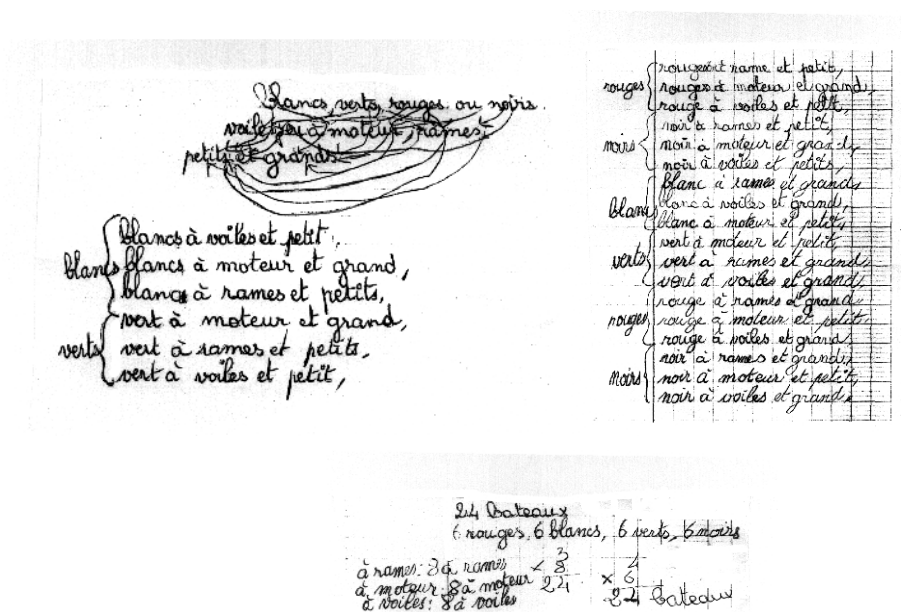 blancs, verts, rouges ou noirs.
voiles ou à moteur, rames,
petits et grands
blancs
blancs à voiles et petit,
blancs à moteur et grand,
blancs à rames et petits,
verts
vert à moteur et grand,
vert à rames et petits,
vert à voiles et petit,
rouges
rouges et rame et petit,
rouges à moteur et grand,
rouge à voiles et petit,
noirs
noir à rames et petit,
noir à moteur et grand,
noir à voiles et petits,
blancs
blanc à rames et grands
blanc à voiles et grand,
blanc à moteur et petit,
verts
vert à moteur et petit,
vert à rames et grand,
vert à voiles et grand,
rouges
rouge à rames et grand
rouge à moteur et petit,
rouge à voiles et grand,
noirs
noir à rames et grand,
noir à moteur et petit,
noir à voiles et grand.
24 Bateaux
6 rouges, 6 blancs, 6 verts, 6 noirs
à rames: 8 à rames
à moteur: 8 à moteur
à voiles: 8 à voiles
3
× 8
24
4
× 6
24 Bateaux